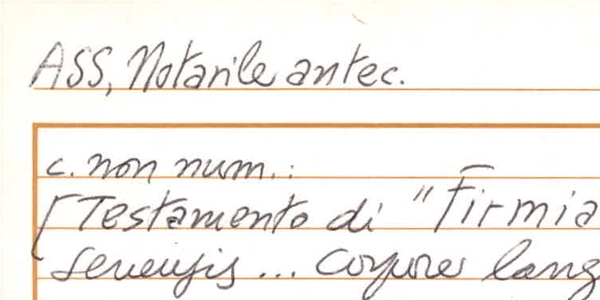 ASS, Notarile antec.
c. non num.:
[Testamento di "Firmia
senensis ... corpore lang